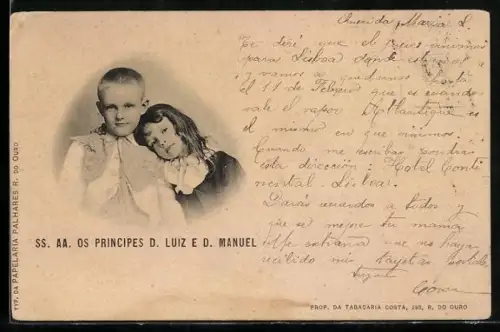 Querida Maria L.
Te diré que el jueves
para Lisboa donde
y vamos a quedarnos hasta
el 11 de Febrero que es cuando
sale el vapor Athlantique es
el mismo en que vinimos.
Cuando me escribas pondras
esta dirección: Hotel Conti
nental. Lisboa.
Daras recuerdos a todos y
que se mejore tu mama
que no haya
recibido mis tarjetas
SS. AA. OS PRINCIPES D. LUIZ E D. MANUEL
TYP. DA PAPELARIA PALHARES R. DO OURO
PROP. DA TABACARIA COSTA, R. DO OURO